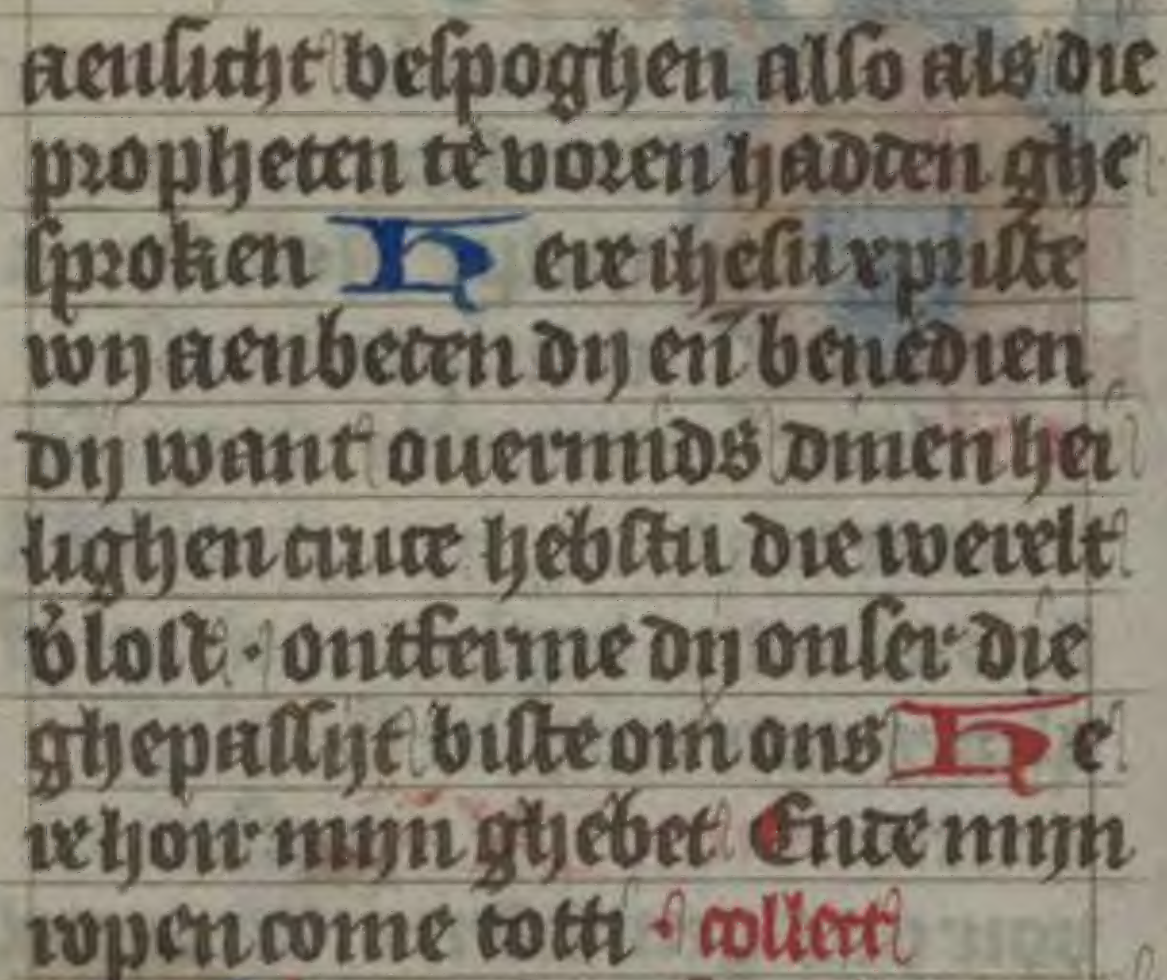 aensicht bespoghen also als die
propheten te voren hadden ghe
sproken Here ihesu xpriste
wij aenbeden dij en̄ benedien
dij want ouermids dinen hei
lighen cruce hebstu die werelt
v̓lost · ontferme dij onser die
ghepassijt biste om ons He
re hoir mijn ghebet Ende mijn
ropen come totti · collect